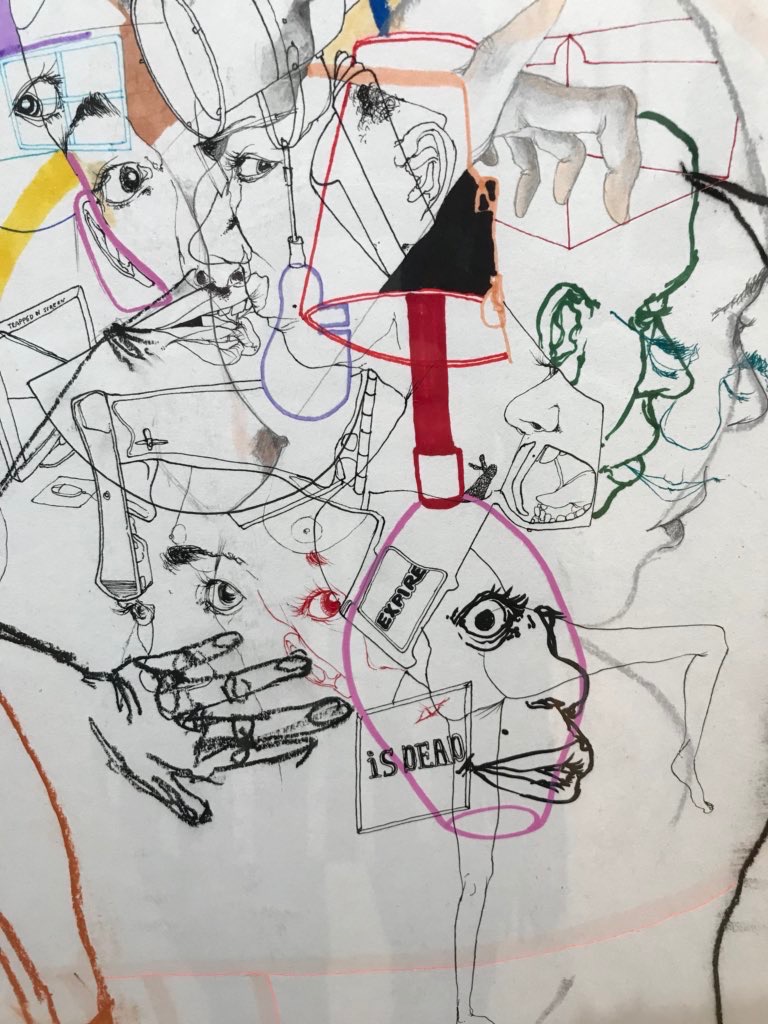 TRAPPED IN SCREEN
EXPIRE
iS DEAD